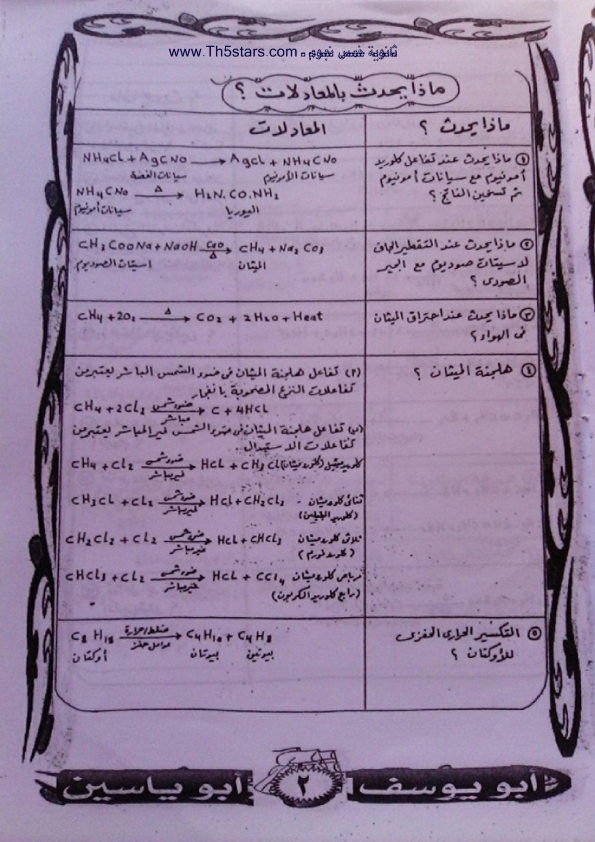 ثانوية خمس نجوم . www.Th5stars.com
ماذا يحدث بالمعادلات ؟
ماذا يحدث ؟
المعادلات
① ماذا يحدث عند تفاعل كلوريد
أمونيوم مع سيانات أمونيوم
ثم تسخين الناتج ؟
NH4CL + AgCNO → AgCL + NH4CNO
سيانات الفضة سيانات الأمونيوم
NH4CNO →Δ H2N.CO.NH2
سيانات أمونيوم اليوريا
② ماذا يحدث عند التقطير الجاف
لاسيتات صوديوم مع الجير
الصودى ؟
CH3COONa + NaOH →CaO Δ CH4 + Na2CO3
اسيتات الصوديوم الميثان
③ ماذا يحدث عند احتراق الميثان
فى الهواء ؟
CH4 + 2O2 →Δ CO2 + 2H2O + Heat
④ هلجنة الميثان ؟
(٢) تفاعل هلجنة الميثان فى ضوء الشمس المباشر يعتبر من
تفاعلات النزع المصحوبة بانفجار
CH4 + 2CL2 →ضوء شمس مباشر C + 4HCL
(ب) تفاعل هلجنة الميثان فى ضوء الشمس غير المباشر يعتبر من
تفاعلات الاستبدال
CH4 + CL2 →ضوء شمس غير مباشر HCL + CH3CL كلوريد ميثيل (كلورو ميثان)
CH3CL + CL2 →ضوء شمس غير مباشر HCL + CH2CL2 ثنائى كلورو ميثان
CH2CL2 + CL2 →ضوء شمس غير مباشر HCL + CHCL3 ثلاثى كلورو ميثان
(كلوروفورم)
CHCL3 + CL2 →ضوء شمس غير مباشر HCL + CCL4 رباعى كلورو ميثان
(رابع كلوريد الكربون)
⑤ التكسير الحرارى الحفزى
للأوكتان ؟
C8H18 →ضغط / حرارة عوامل حفز C4H10 + C4H8
أوكتان بيوتان بيوتين
أبو يوسف ٢ أبو ياسين